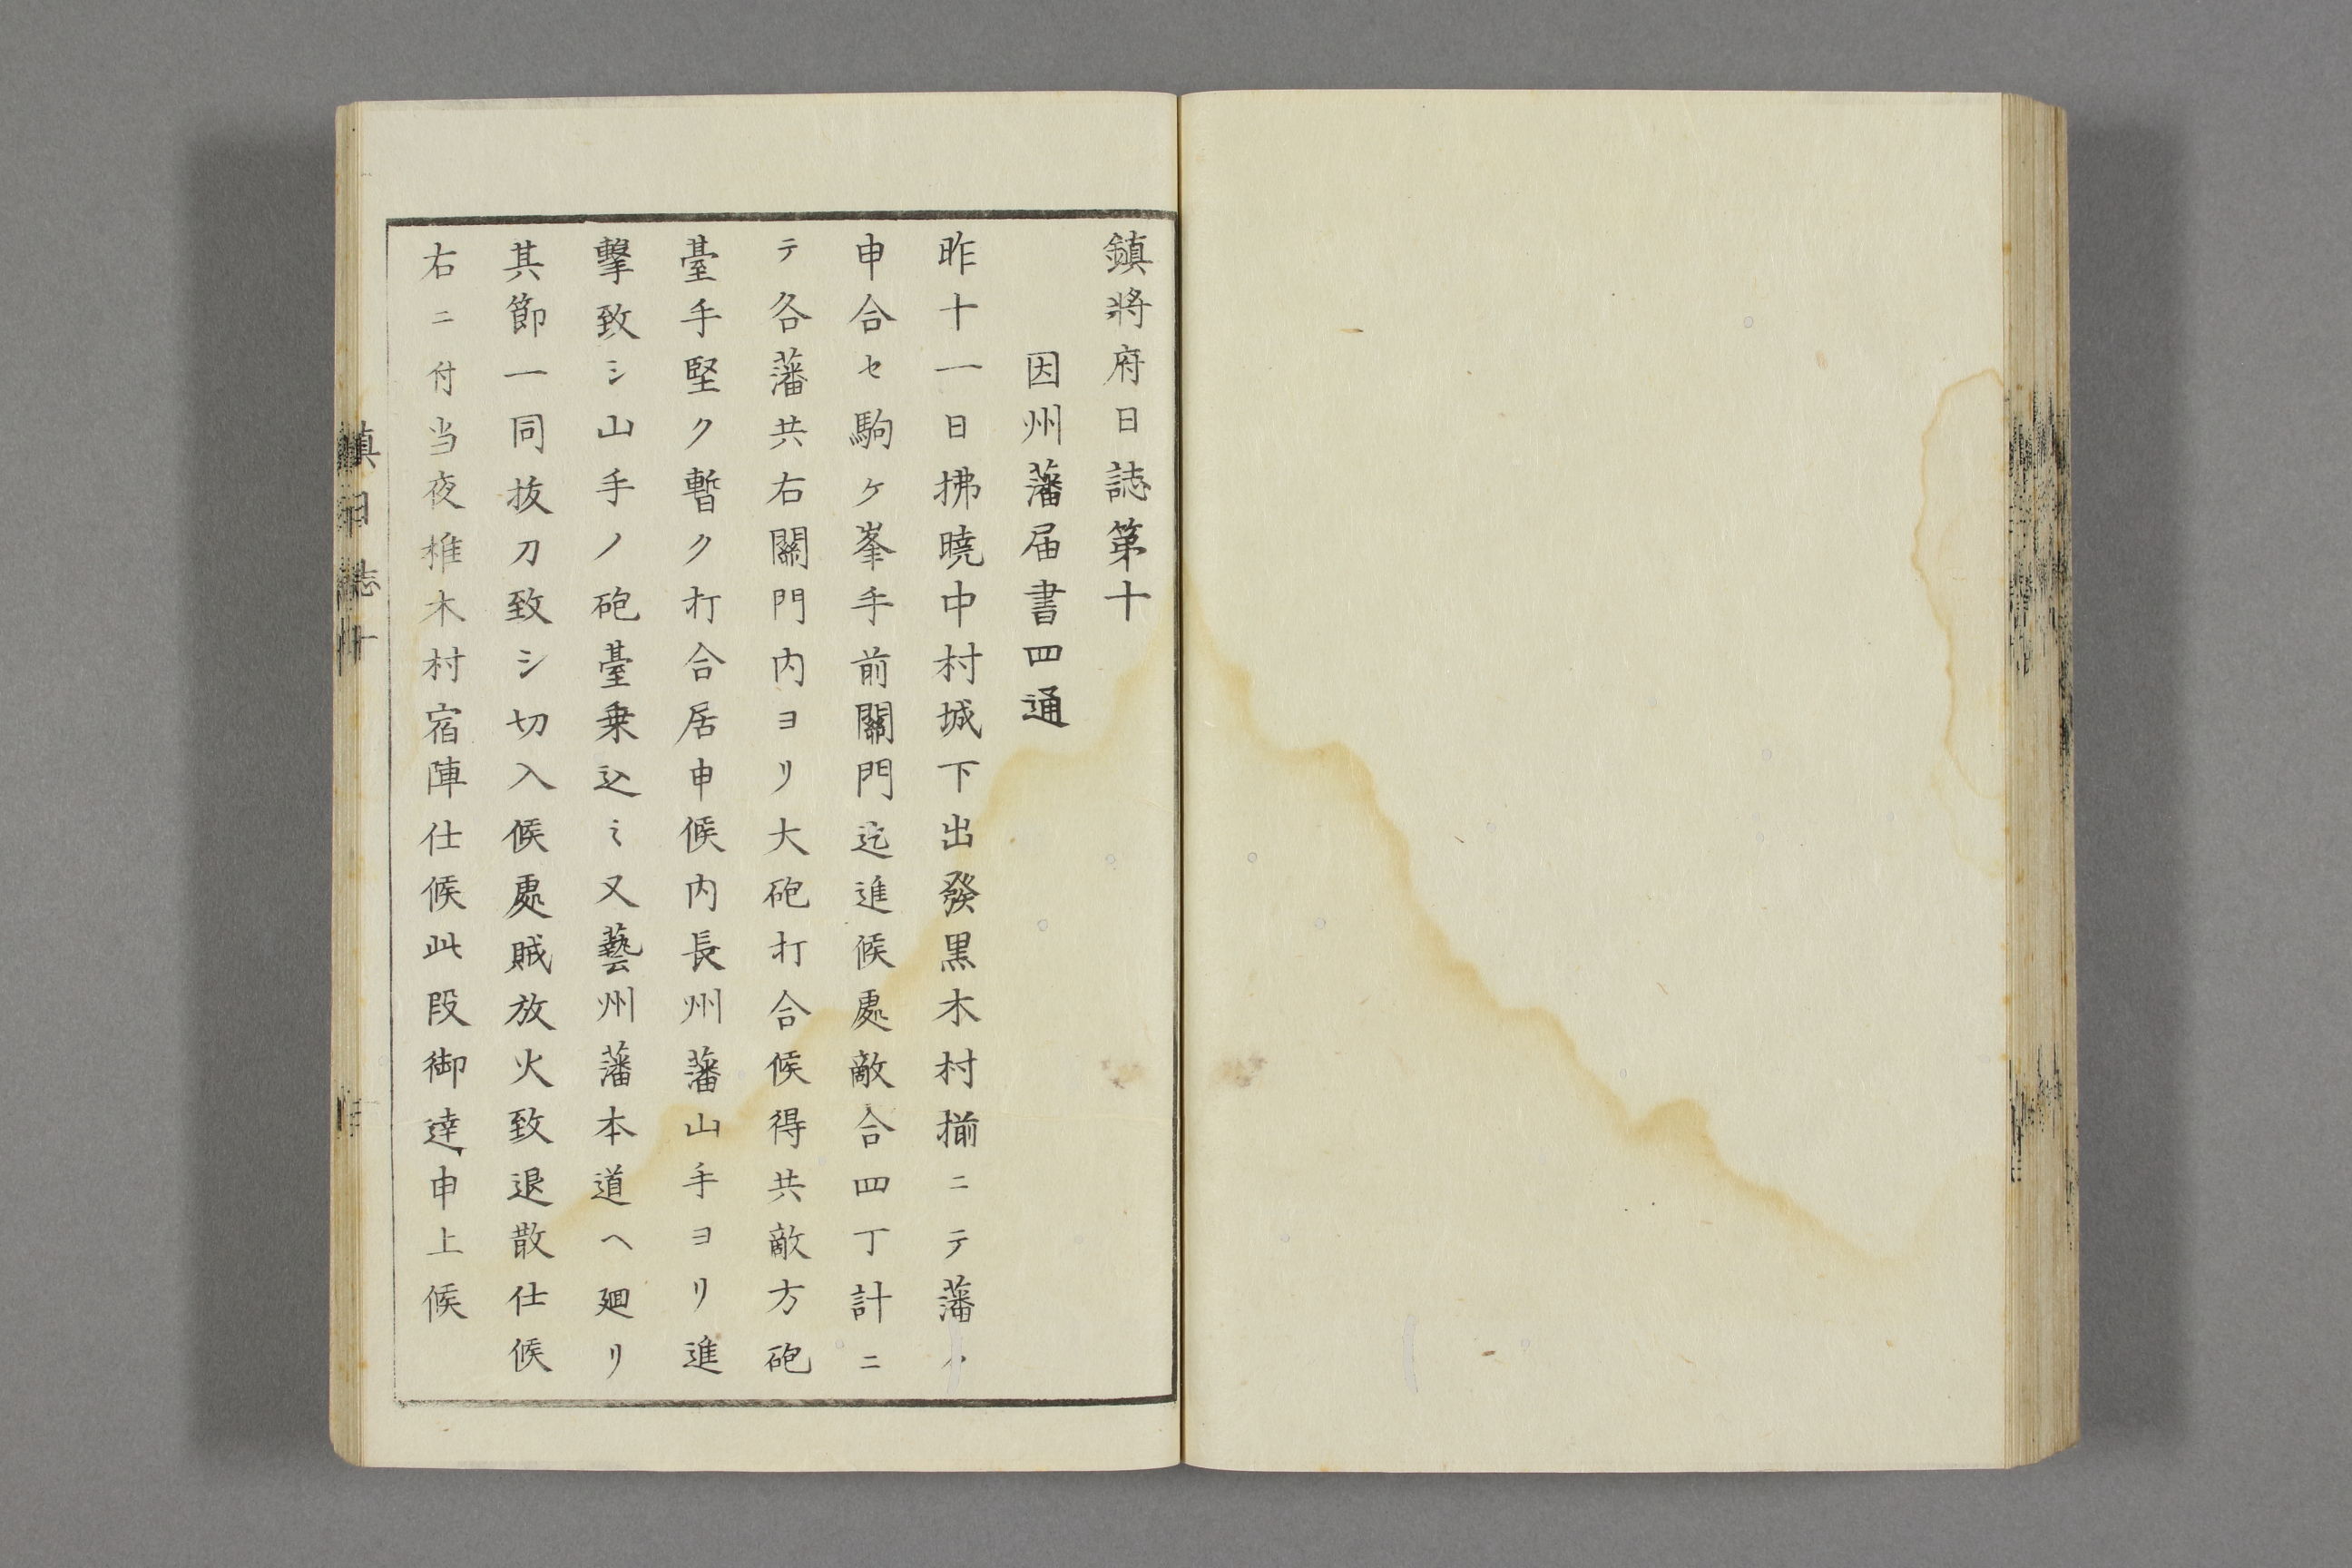 鎮將府日誌第十
因州藩届書四通
昨十一日拂曉中村城下出發黒木村揃ニテ藩々
申合セ駒ケ峯手前關門迄進候處敵合四丁計ニ
テ各藩共右關門内ヨリ大砲打合候得共敵方砲
臺手堅ク暫ク打合居申候内長州藩山手ヨリ進
擊致シ山手ノ砲臺乗込ミ又藝州藩本道ヘ廻リ
其節一同抜刀致シ切入候處賊放火致退散仕候
右ニ付当夜椎木村宿陣仕候此段御達申上候
鎮日誌十